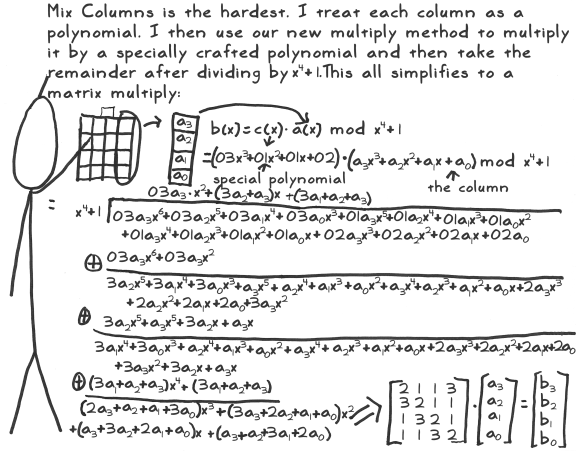 Mix Columns is the hardest. I treat each column as a
polynomial. I then use our new multiply method to multiply
it by a specially crafted polynomial and then take the
remainder after dividing by x⁴+1. This all simplifies to a
matrix multiply:
a₃
a₂
a₁
a₀
b(x)=c(x)·a(x) mod x⁴+1
=(03x³+01x²+01x+02)·(a₃x³+a₂x²+a₁x+a₀) mod x⁴+1
special polynomial
the column
03a₃·x²+(3a₂+a₃)x+(3a₁+a₂+a₃)
x⁴+1
03a₃x⁶+03a₂x⁵+03a₁x⁴+03a₀x³+01a₃x⁵+01a₂x⁴+01a₁x³+01a₀x²
+01a₃x⁴+01a₂x³+01a₁x²+01a₀x+02a₃x³+02a₂x²+02a₁x+02a₀
⊕ 03a₃x⁶+03a₃x²
3a₂x⁵+3a₁x⁴+3a₀x³+a₃x⁵+a₂x⁴+a₁x³+a₀x²+a₃x⁴+a₂x³+a₁x²+a₀x+2a₃x³
+2a₂x²+2a₁x+2a₀+3a₃x²
⊕ 3a₂x⁵+a₃x⁵+3a₂x+a₃x
3a₁x⁴+3a₀x³+a₂x⁴+a₁x³+a₀x²+a₃x⁴+a₂x³+a₁x²+a₀x+2a₃x³+2a₂x²+2a₁x+2a₀
+3a₃x²+3a₂x+a₃x
⊕ (3a₁+a₂+a₃)x⁴+(3a₁+a₂+a₃)
(2a₃+a₂+a₁+3a₀)x³+(3a₃+2a₂+a₁+a₀)x²
+(a₃+3a₂+2a₁+a₀)x+(a₃+a₂+3a₁+2a₀)
=
2 1 1 3
3 2 1 1
1 3 2 1
1 1 3 2
·
a₃
a₂
a₁
a₀
=
b₃
b₂
b₁
b₀